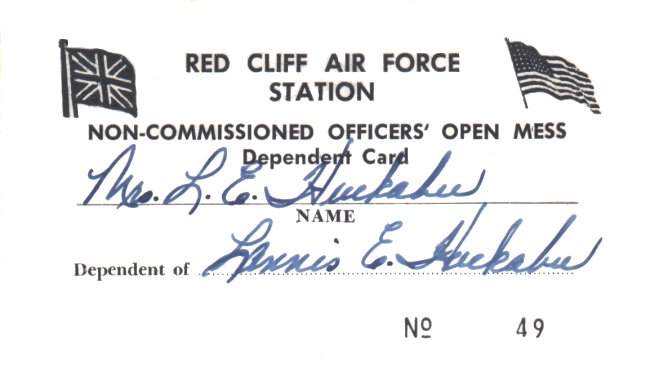 RED CLIFF AIR FORCE
STATION
NON-COMMISSIONED OFFICERS' OPEN MESS
Dependent Card
Mrs. L. E. Huckabee
NAME
Dependent of Lennis E. Huckabee
Nº 49